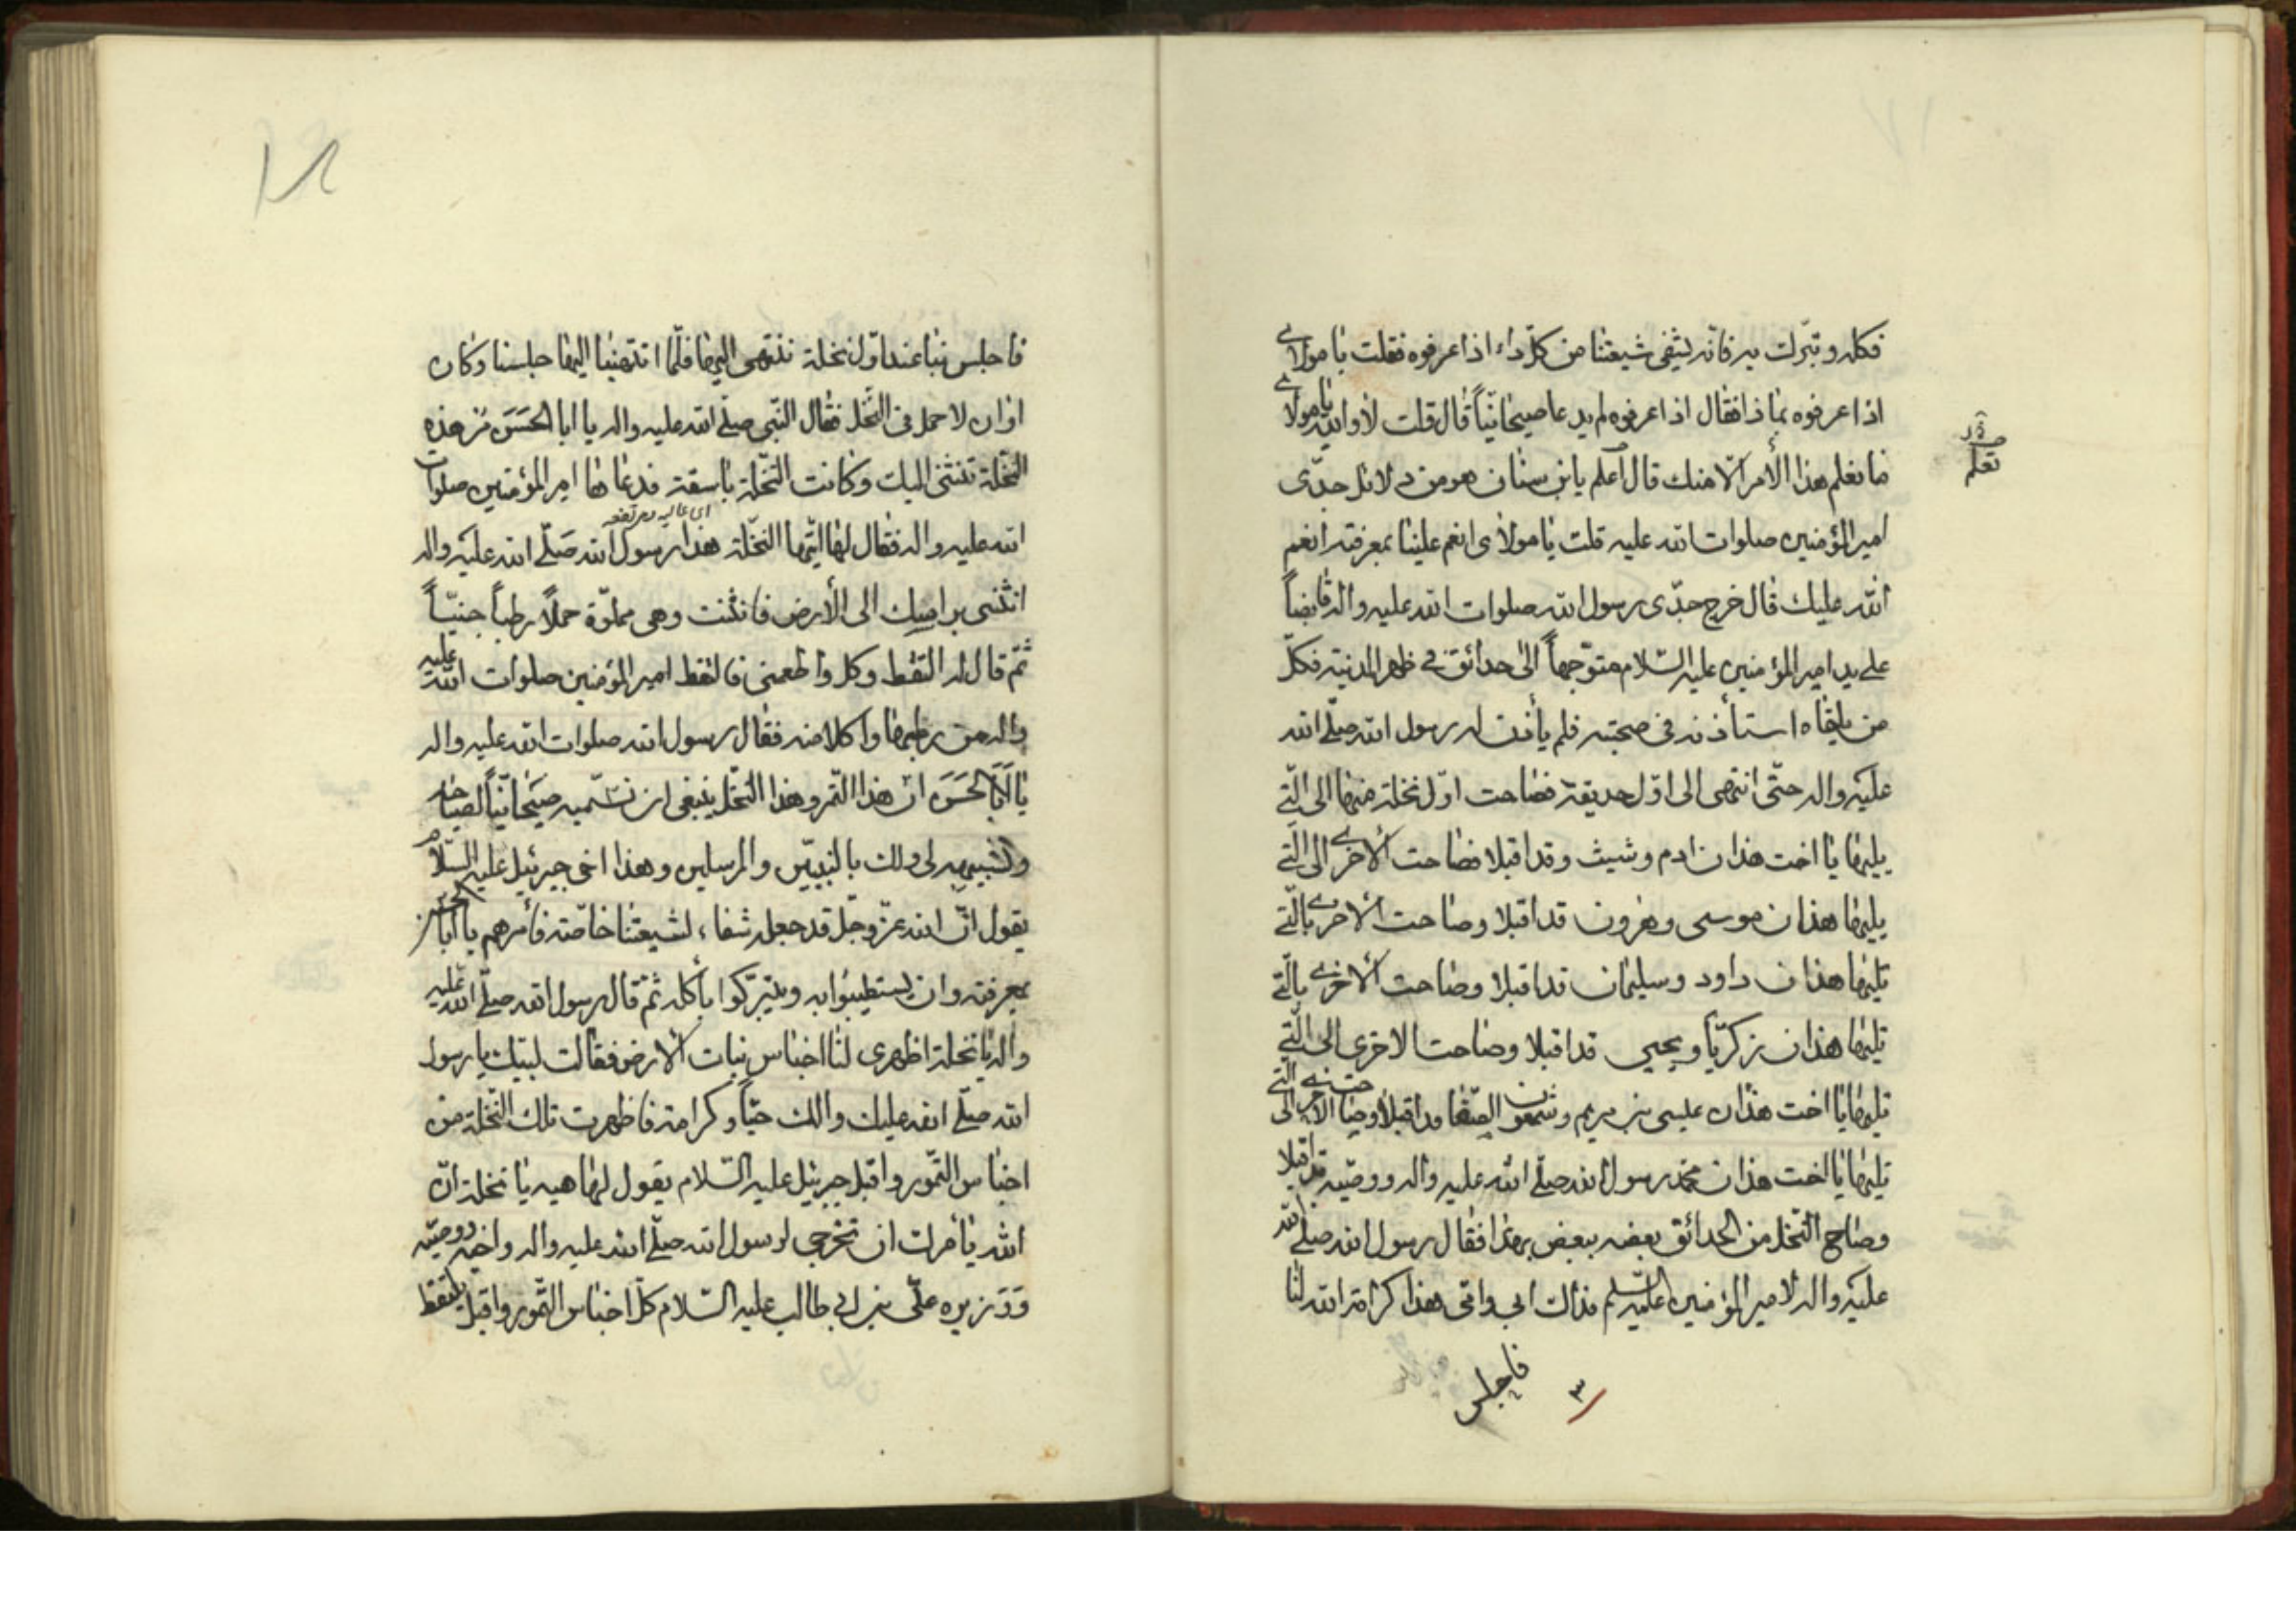 فكله وتبرك به فانه يشفى شيعتنا من كل داء اذا عرفوه فقلت يا مولاى
اذا عرفوه بماذا فقال اذا عرفوه لم يدعا صيحانيا قال قلت لا والله يا مولاى
ما نعلم هذا الأمر الا منك قال اعلم يابن سنان هو من دلائل جدى
امير المؤمنين صلوات الله عليه قلت يا مولاى انعم علينا بمعرفته انعم
الله عليك قال خرج جدى رسول الله صلوات الله عليه واله قابضاً
على يد امير المؤمنين عليه السلام متوجهاً الى حدائق فى ظهر المدينة فكل
من يلقاه استأذنه فى صحبته فلم يأذن له رسول الله صلى الله
عليه واله حتى انتهى الى اول حديقة فصاحت اول نخلة منها الى التى
يليها يا اخت هذان ادم وشيث وقد اقبلا فصاحت الاخرى الى التى
يليها هذان موسى وهرون قد اقبلا وصاحت الاخرى بالتى
تليها هذان داود وسليمان قد اقبلا وصاحت الاخرى بالتى
تليها هذان زكريا ويحيى قد اقبلا وصاحت الاخرى الى التى
تليها يا اخت هذان عيسى بن مريم وشمعون الصفا قد اقبلا وصاحت الاخرى الى التى
تليها يا اخت هذان محمد رسول الله صلى الله عليه واله ووصيه قد اقبلا
وصاح النخل من الحدائق بعضه ببعض بهذا فقال رسول الله صلى الله
عليه واله لامير المؤمنين عليه السلم فداك ابى وامى هذا كرامة الله لنا
فاجلس
٣
تعلم
فاجلس بنا عند اول نخلة ننتهى اليها فلما انتهينا اليها جلسنا وكان
اوان لا حمل فى النخل فقال النبى صلى الله عليه واله يا ابا الحسن مر هذه
النخلة تنثنى اليك وكانت النخلة باسقة فدعاها امير المؤمنين صلوات
اى عاليه مرتفعه
الله عليه واله فقال لها ايتها النخلة هذا رسول الله صلى الله عليه واله
انثنى براسك الى الأرض فانثنت وهى مملوة حملاً رطباً جنيّاً
ثم قال له التقط وكل واطعمنى فالتقط امير المؤمنين صلوات الله عليه
واله من رطبها واكلا منه فقال رسول الله صلوات الله عليه واله
يا ابا الحسن ان هذا التمر وهذا النخل ينبغى ان نسميه صيحانياً لصياحه
وتشبيهه لى ولك بالنبيين والمرسلين وهذا اخى جبرئيل عليه السلام
يقول ان الله عز وجل قد جعله شفاء لشيعتنا خاصة فأمرهم يا ابا الحسن
بمعرفته وان يستطيبوا به ويتبركوا بأكله ثم قال رسول الله صلى الله عليه
واله يا نخلة اظهرى لنا اجناس نبات الارض فقالت لبيك يا رسول
الله صلى الله عليك والك حباً وكرامة فاظهرت تلك النخلة من
اجناس التمور واقبل جبرئيل عليه السلام يقول لها هيه يا نخلة ان
الله يأمرك ان تخرجى لرسول الله صلى الله عليه واله واخيه ووصيه
ووزيره على بن ابى طالب عليه السلام كل اجناس التمور واقبل يلتقط